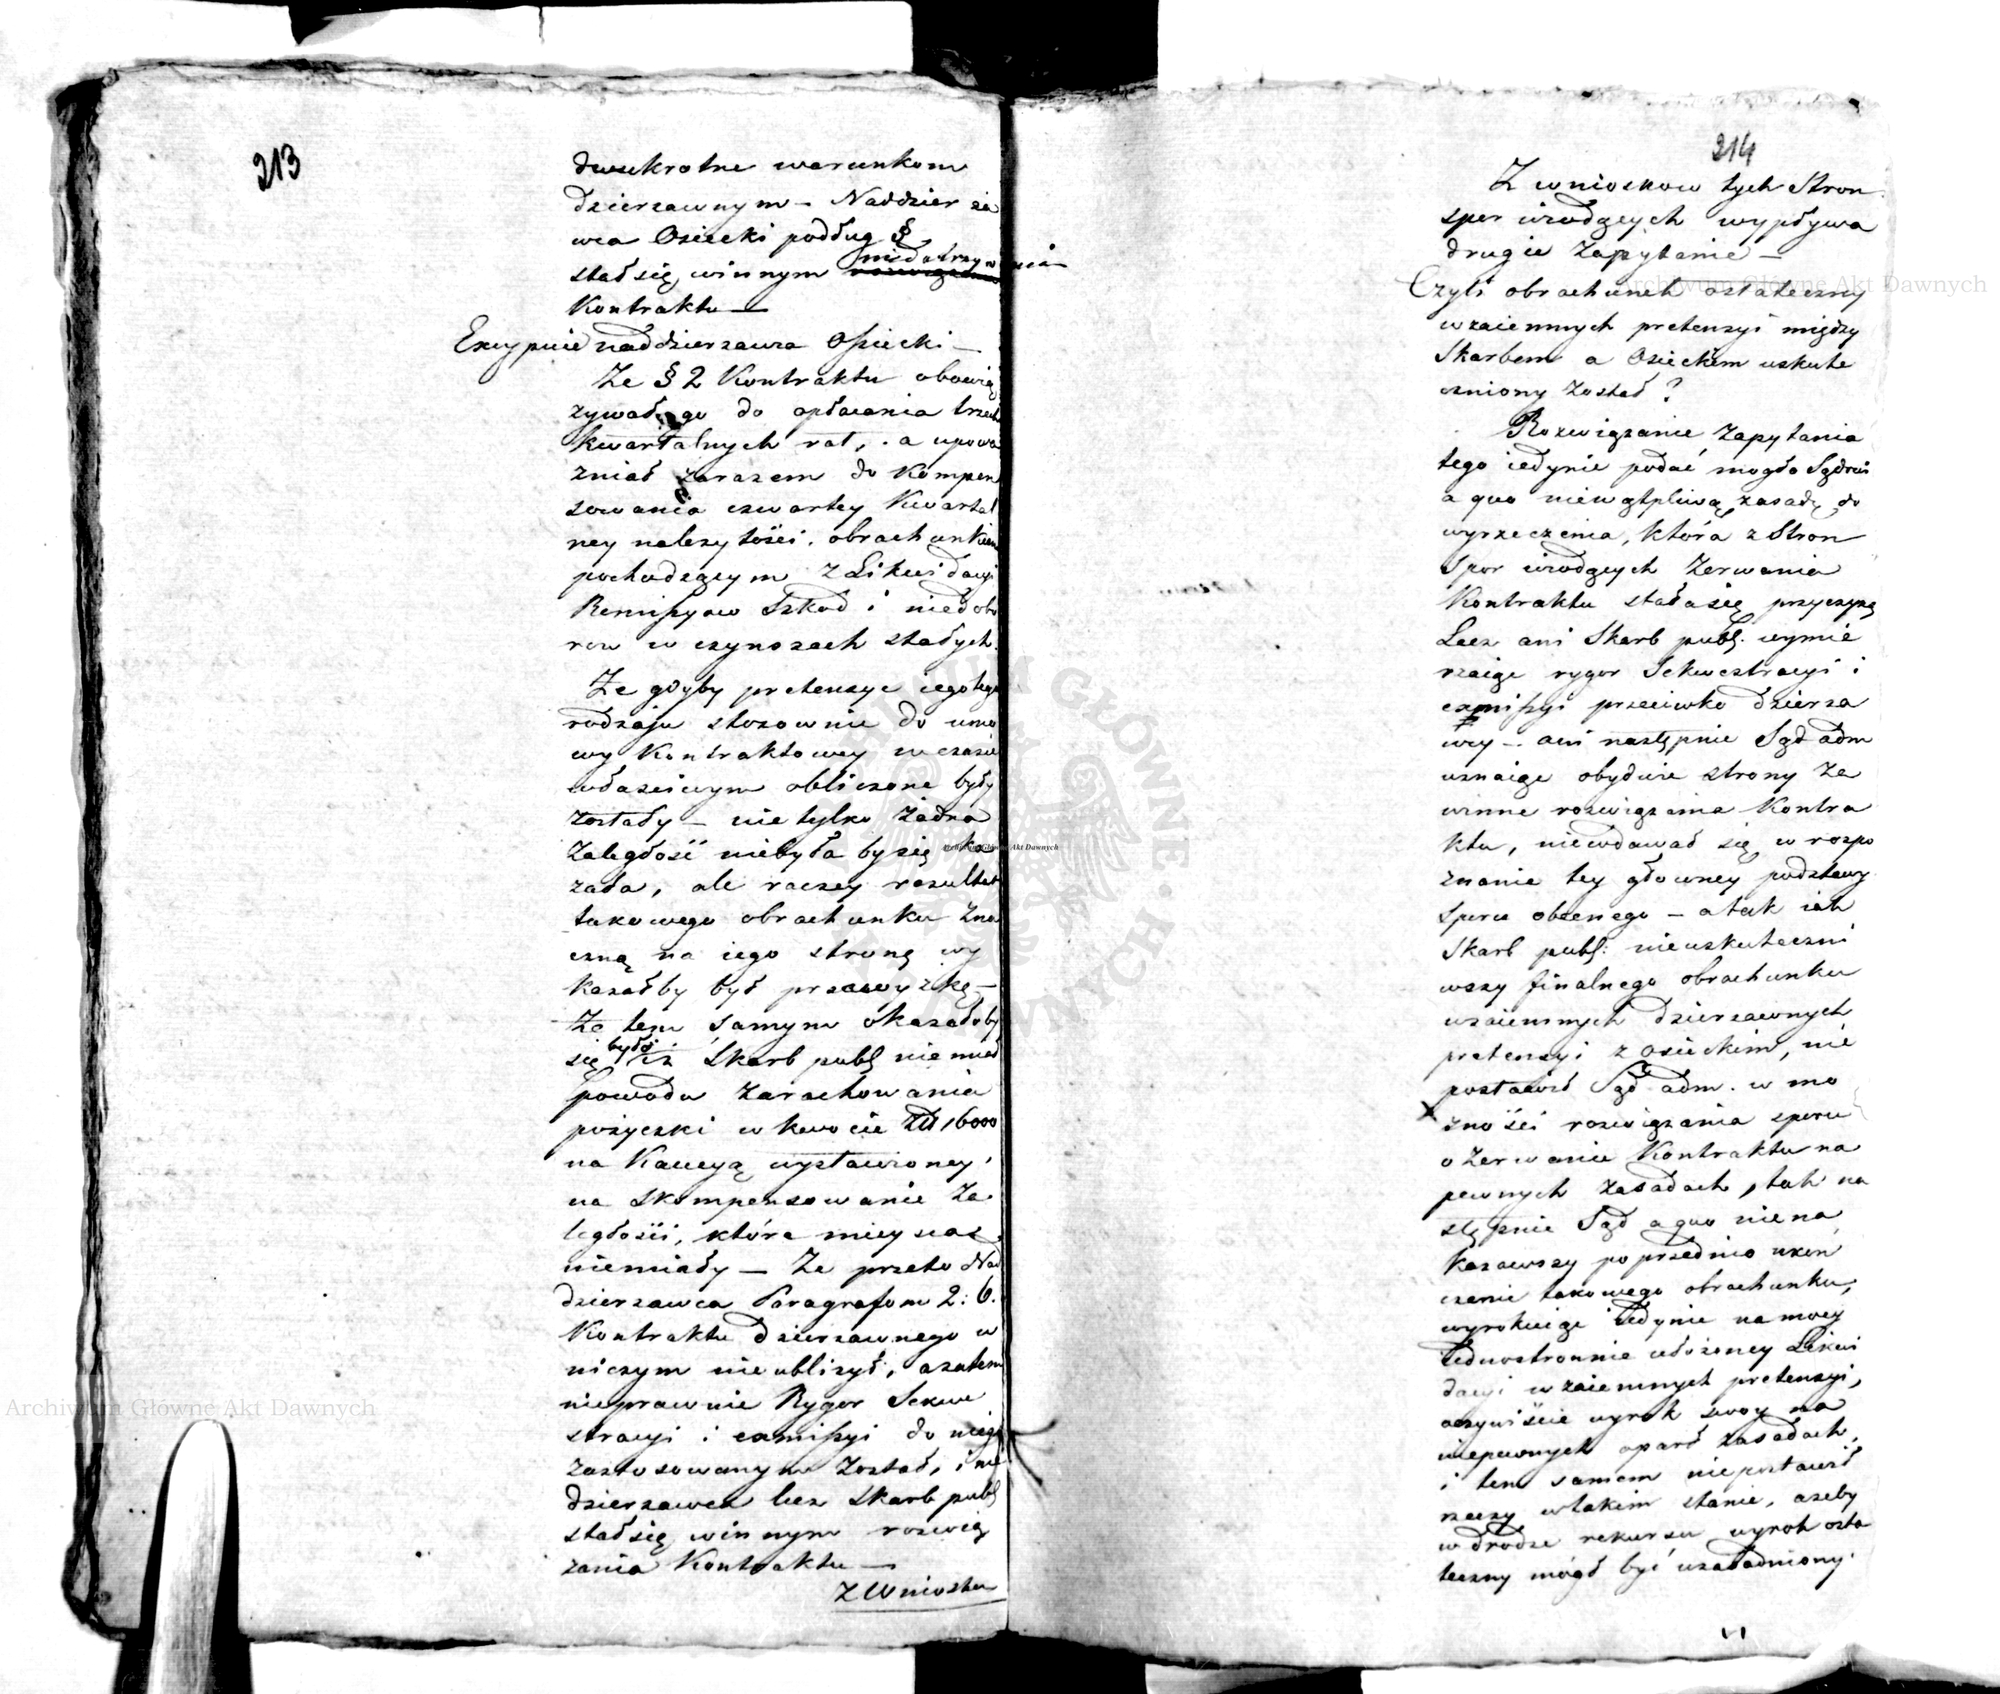 213
dwukrotne warunkom
dzierzawnym – Naddzierza
wca Osiecki podług §
niedotrzymania
stał się winnym
Kontraktu —
Excypuie naddzierzawca Osiecki —
Ze § 2 Kontraktu obowią
zywał go do opłacania trzech
kwartalnych rat, a upowa
zniał zarazem do Kompen
sowania czwartey Kwartal
ney nalezytości obrachunkiem
pochodzącym z Likwidacyi
Remissyow Szkod i niedobo
row w czynszach stałych.
Ze gdyby pretensye iego tego
rodzaju stosownie do umo
wy Kontraktowey w czasie
właściwym obliczone były
zostały – nie tylko żadna
zaległość niebyła by się oka
zała, ale raczey rezultat
takowego obrachunku zna
czną na iego stronę wy
kazałby był przewyżkę —
Ze tem samym okazałoby
się było iż Skarb publ niemiał
powodu zarachowania
pożyczki w kwocie Złł 16000
na Kaucyą wystawioney
na skompensowanie Za
ległości, które mieysca
niemiały — Ze przeto Nad
dzierzawca Paragrafom 2: 6.
Kontraktu dzierzawnego w
niczym nieubliżył, a zatem
nieprawnie Rygor Sekwe
stracyi i exmissyi do niego
zastosowanym został, i nie
dzierzawca lecz Skarb publ
stał się winnym rozwią
zania Kontraktu —
Z Wniosku
214
Z wnioskow tych Stron
spor wiodących wypływa
drugie Zapytanie —
Czyli obrachunek ostateczny
wzaiemnych pretensyi między
Skarbem a Osieckim uskute
czniony został?
Rozwiązanie Zapytania
tego iedynie podać mogło Sądowi
a quo niewątpliwą zasadę do
wyrzeczenia, która z Stron
Spor wiodących Zerwania
Kontraktu stała się przyczyną
Lecz ani Skarb publ. wymie
rzaiąc rygor Sekwestracyi i
exmissyi przeciwko dzierza
wcy – ani następnie Sąd adm
uznaiąc obydwie strony Za
winne rozwiązania Kontra
ktu, niewdawał się w rozpo
znanie tey głowney podstawy
Sporu obecnego – a tak iak
Skarb publ: nieuskuteczni
wszy finalnego obrachunku
wzaiemnych dzierzawnych
pretensyi z Osieckim, nie
postawił Sąd adm. w mo
żności rozwiązania sporu
o Zerwanie Kontraktu na
pewnych zasadach, tak na
stępnie Sąd a quo niena
kazawszy poprzednio ukoń
czenie takowego obrachunku,
wyrokuiąc iedynie na mocy
iednostronnie ułożoney Likwi
dacyi wzaiemnych pretensyi,
oczywiście wyrok swoy na
niepewnych oparł zasadach,
i tem samem niepostawił
rzeczy w takim stanie, ażeby
w drodze rekursu wyrok osta
teczny mógł być uzasadniony.
Archiwum Główne Akt Dawnych
Archiwum Główne Akt Dawnych
Archiwum Główne Akt Dawnych